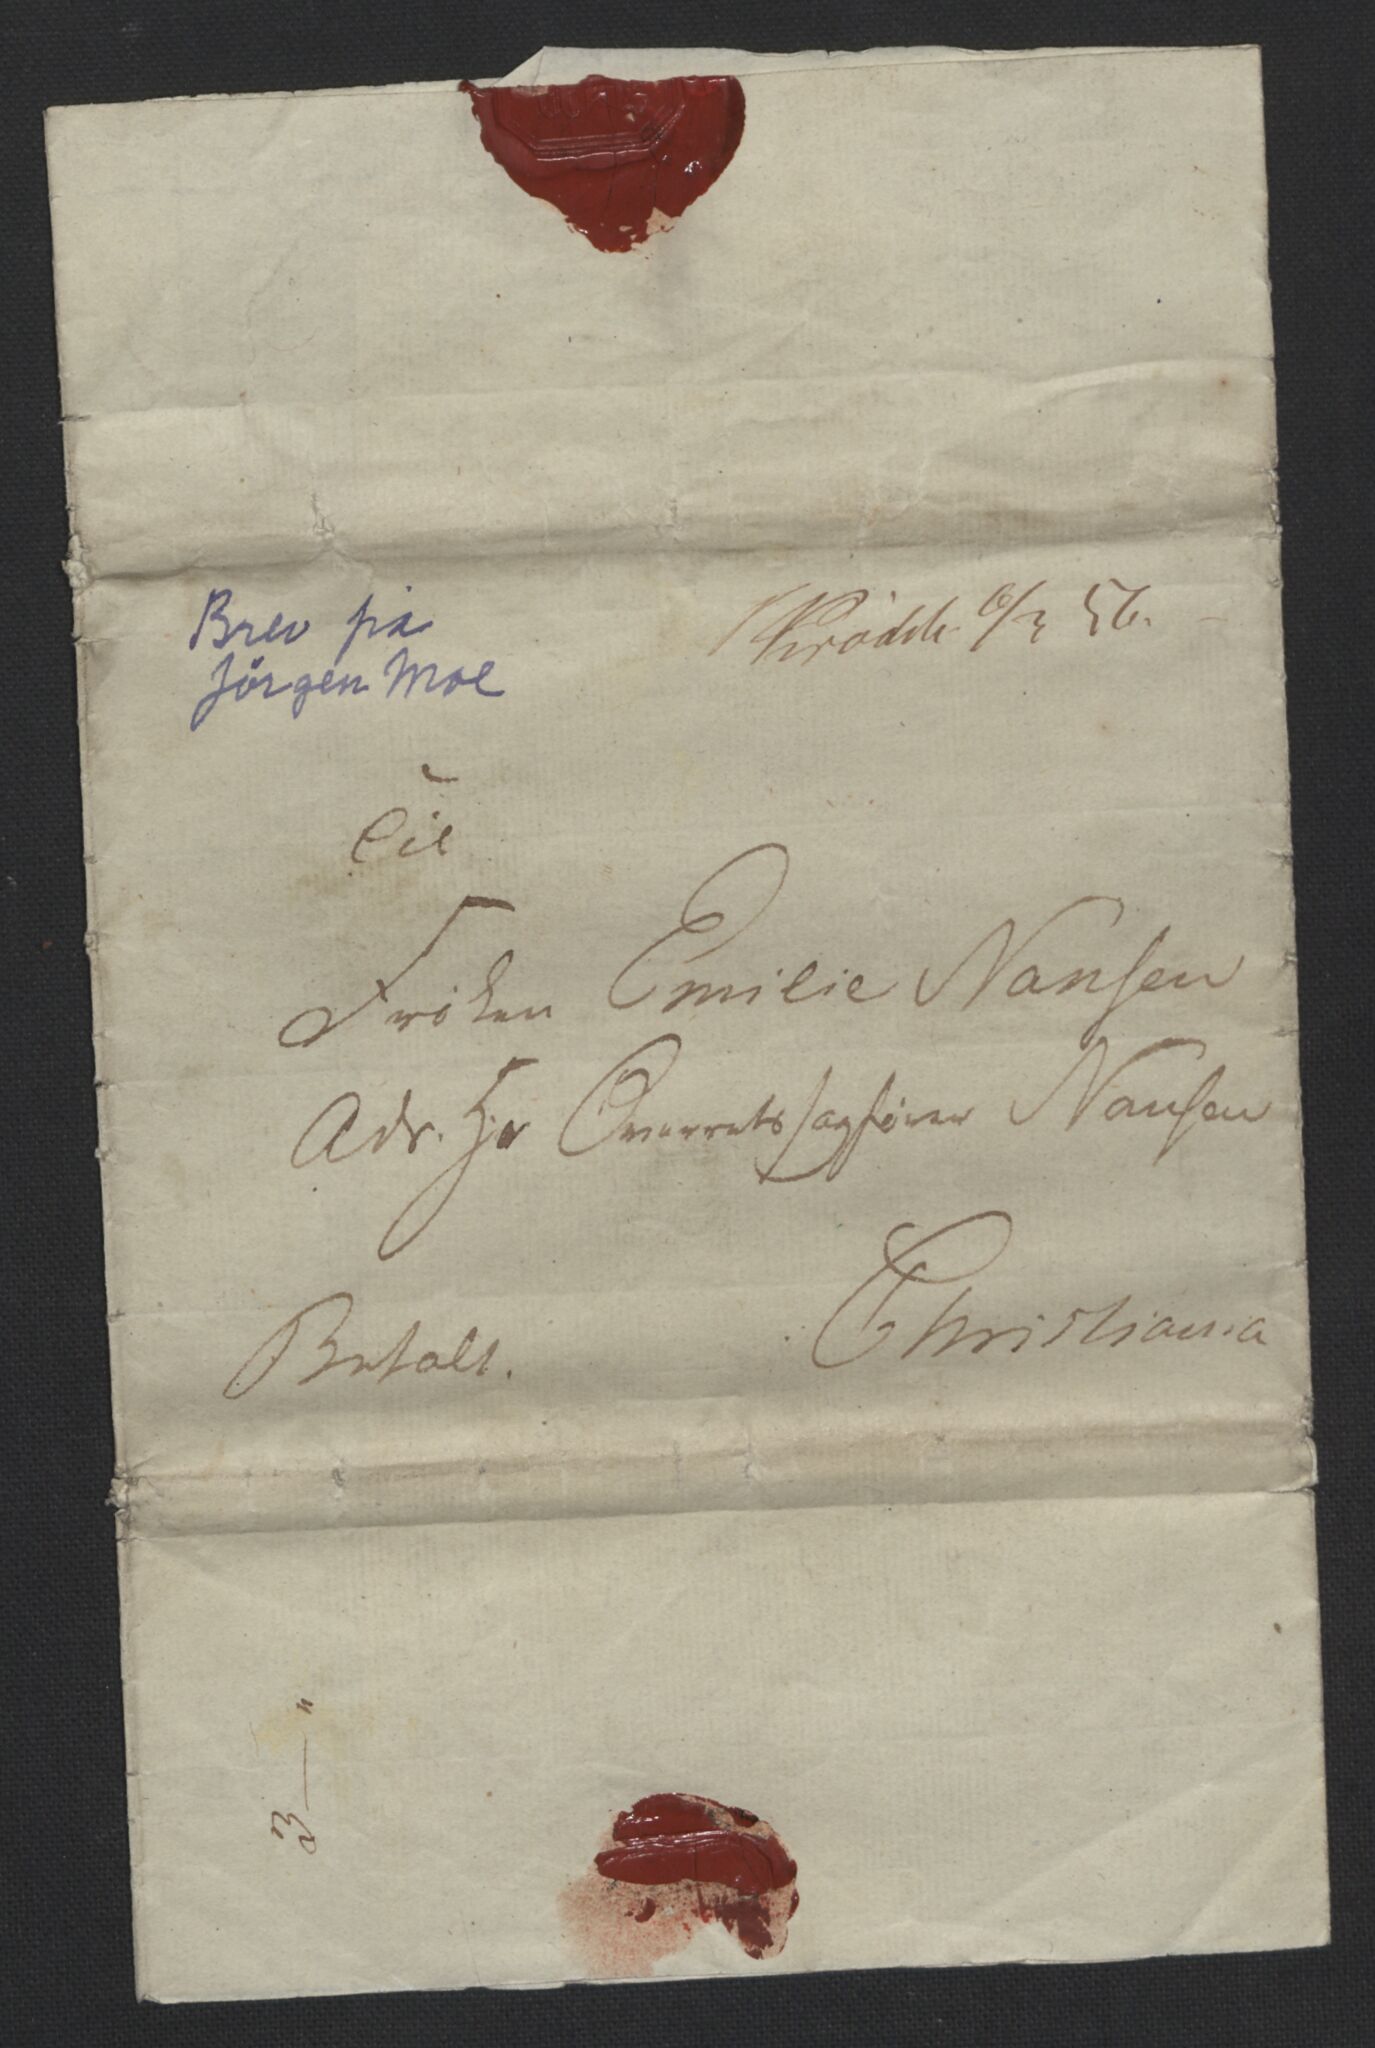 Brev fra
Jörgen Moe
Krödsh. 6/3 56.
Til
Frøken Emilie Nansen
Adr. Hr Overretssagfører Nansen
Christiania
Betalt.
3 — "